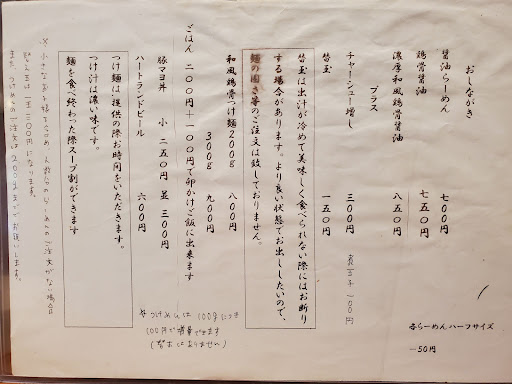 おしながき
醤油らーめん 七〇〇円
鶏骨醤油 七五〇円
濃厚和風鶏骨醤油 八五〇円
プラス
チャーシュー増し 三〇〇円
替玉 一五〇円
替玉は出汁が冷めて美味しく食べられない際にはお断り
する場合があります。より良い状態でお出ししたいので、
麺の固さ等のご注文は致しておりません。
和風鶏骨つけ麺200g 八〇〇円
300g 九〇〇円
ごはん 二〇〇円+一〇〇円で卵かけご飯に出来ます
豚マヨ丼 小 二五〇円 並 三〇〇円
ハートランドビール 六〇〇円
つけ麺は提供の際お時間をいただきます。
つけ汁は濃い味です。
麺を食べ終わった際スープ割ができます
※小さなお子様でらーめん人数分のらーめんのご注文がない場合
替え玉は一玉三〇〇円になります。
また、つけめんのご注文は200gまででお願いします。
※つけめんは100gにつき
100円で増量できます
(替玉はありません)
各らーめんハーフサイズ
−50円